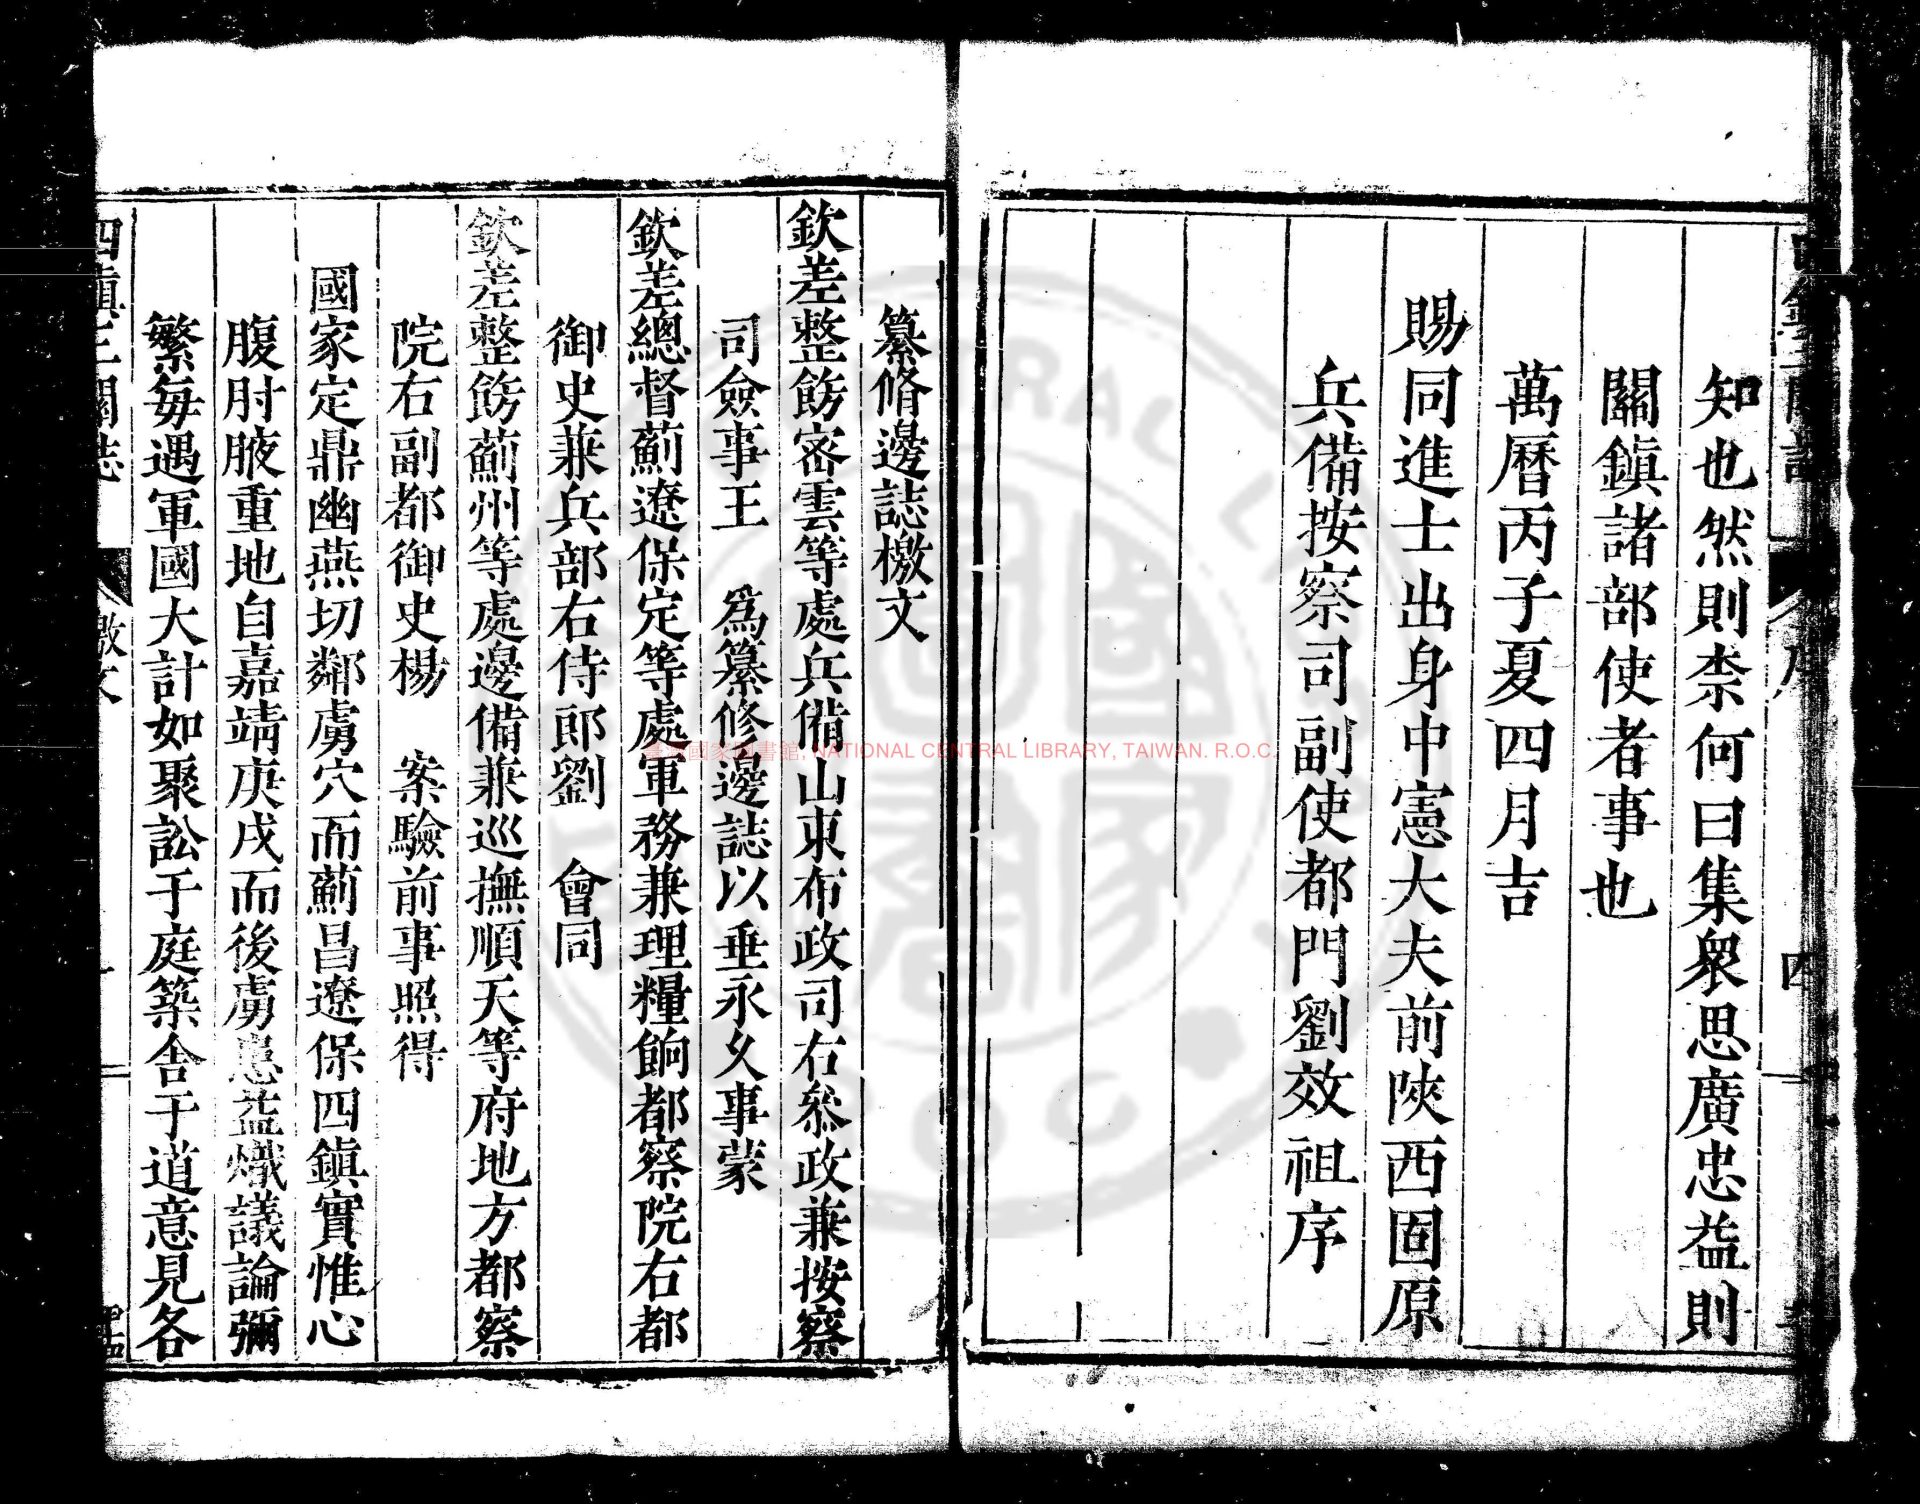 知也然則柰何曰集衆思廣忠益則
關鎮諸部使者事也
萬曆丙子夏四月吉
賜同進士出身中憲大夫前陝西固原
兵備按察司副使都門劉效祖序
纂脩邊誌檄文
欽差整飭密雲等處兵備山東布政司右叅政兼按察
司僉事王　爲纂修邊誌以垂永久事蒙
欽差總督薊遼保定等處軍務兼理糧餉都察院右都
御史兼兵部右侍郎劉　會同
欽差整飭薊州等處邊備兼巡撫順天等府地方都察
院右副都御史楊　案驗前事照得
國家定鼎幽燕切鄰虜穴而薊昌遼保四鎮實惟心
腹肘腋重地自嘉靖庚戌而後虜患益熾議論彌
繁每遇軍國大計如聚訟于庭築舍于道意見各
四鎮三關誌
檄文
一
臺灣國家圖書館, NATIONAL CENTRAL LIBRARY, TAIWAN. R.O.C.